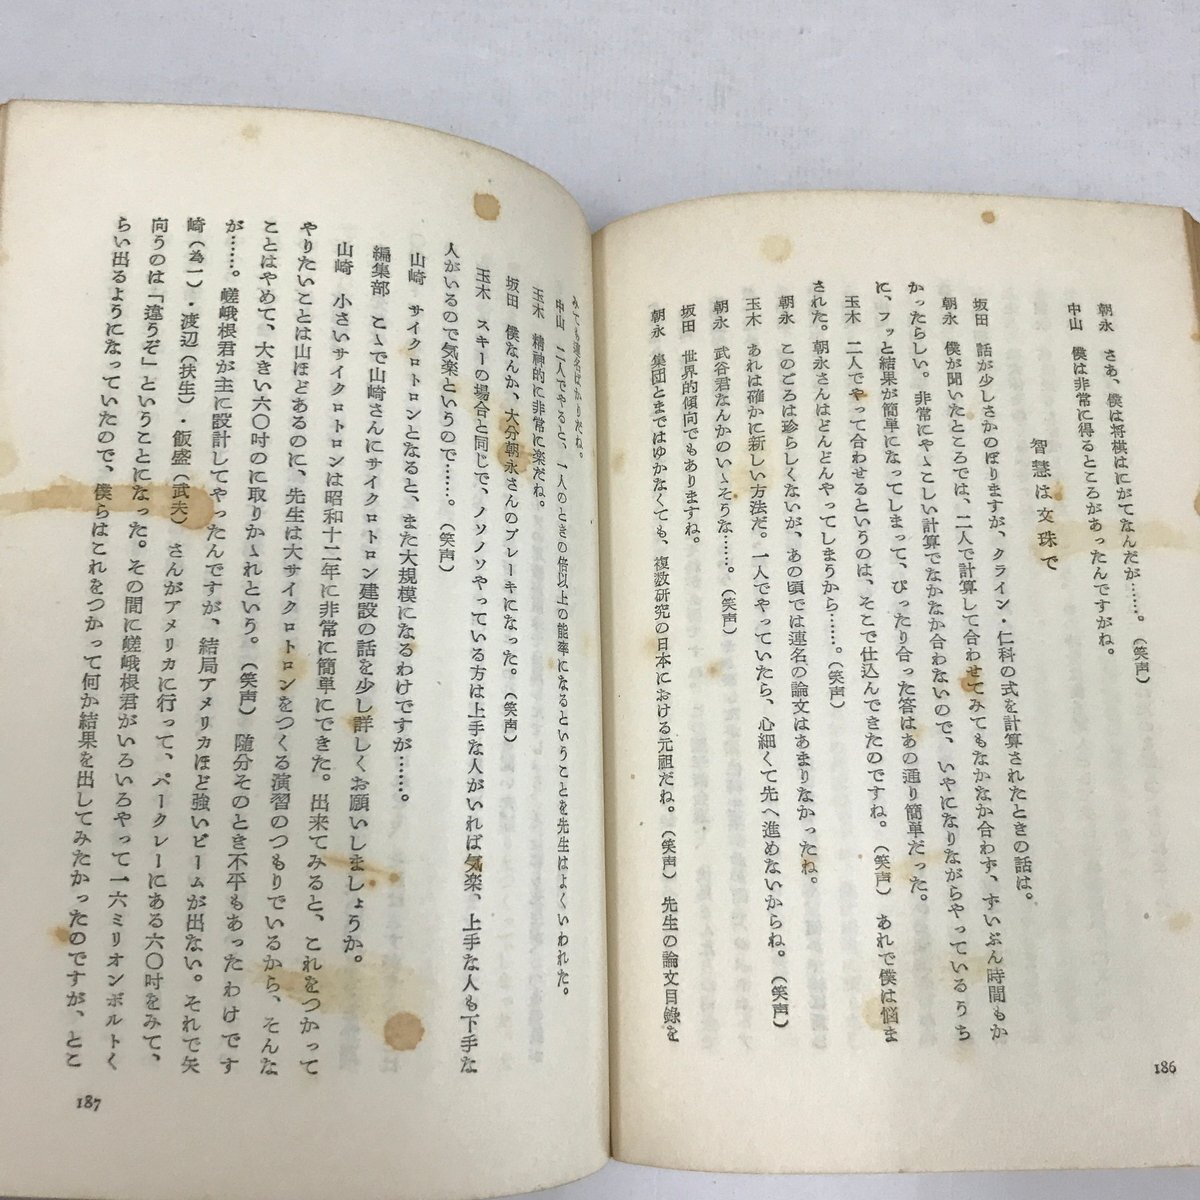 朝永　さあ、僕は将棋はにがてなんだが……。（笑声）
中山　僕は非常に得るところがあったんですがね。
智慧は文珠で
坂田　話が少しさかのぼりますが、クライン・仁科の式を計算されたときの話は。
朝永　僕が聞いたところでは、二人で計算して合わせてみてもなかなか合わず、ずいぶん時間もか
かったらしい。非常にやゝこしい計算でなかなか合わないので、いやになりながらやっているうち
に、フッと結果が簡単になってしまって、ぴったり合った答はあの通り簡単だった。
玉木　二人でやって合わせるというのは、そこで仕込んできたのですね。（笑声）あれで僕は悩ま
された。朝永さんはどんどんやってしまうから……。（笑声）
朝永　このごろは珍らしくないが、あの頃では連名の論文はあまりなかったね。
玉木　あれは確かに新しい方法だ。一人でやっていたら、心細くて先へ進めないからね。（笑声）
朝永　武谷君なんかのいゝそうな……。（笑声）
坂田　世界的傾向でもありますね。
朝永　集団とまではゆかなくても、複数研究の日本における元祖だね。（笑声）先生の論文目録を
186
みても連名ばかりだね。
中山　二人でやると、一人のときの倍以上の能率になるということを先生はよくいわれた。
玉木　精神的に非常に楽だね。
坂田　僕なんか、大分朝永さんのブレーキになった。（笑声）
玉木　スキーの場合と同じで、ノソノソやっている方は上手な人がいれば気楽、上手な人も下手な
人がいるので気楽というので……。（笑声）
山崎　サイクロトロンとなると、また大規模になるわけですが……。
編集部　こゝで山崎さんにサイクロトロン建設の話を少し詳しくお願いしましょうか。
山崎　小さいサイクロトロンは昭和十二年に非常に簡単にできた。出来てみると、これをつかって
やりたいことは山ほどあるのに、先生は大サイクロトロンをつくる演習のつもりでいるから、そんな
ことはやめて、大きい六〇吋のに取りかゝれという。（笑声）随分そのとき不平もあったわけです
が……。嵯峨根君が主に設計してやったんですが、結局アメリカほど強いビームが出ない。それで矢
崎（為一）・渡辺（扶生）・飯盛（武夫）さんがアメリカに行って、バークレーにある六〇吋をみて、
向うのは「違うぞ」ということになった。その間に嵯峨根君がいろいろやって一六ミリオンボルトく
らい出るようになっていたので、僕らはこれをつかって何か結果を出してみたかったのですが、とこ
187